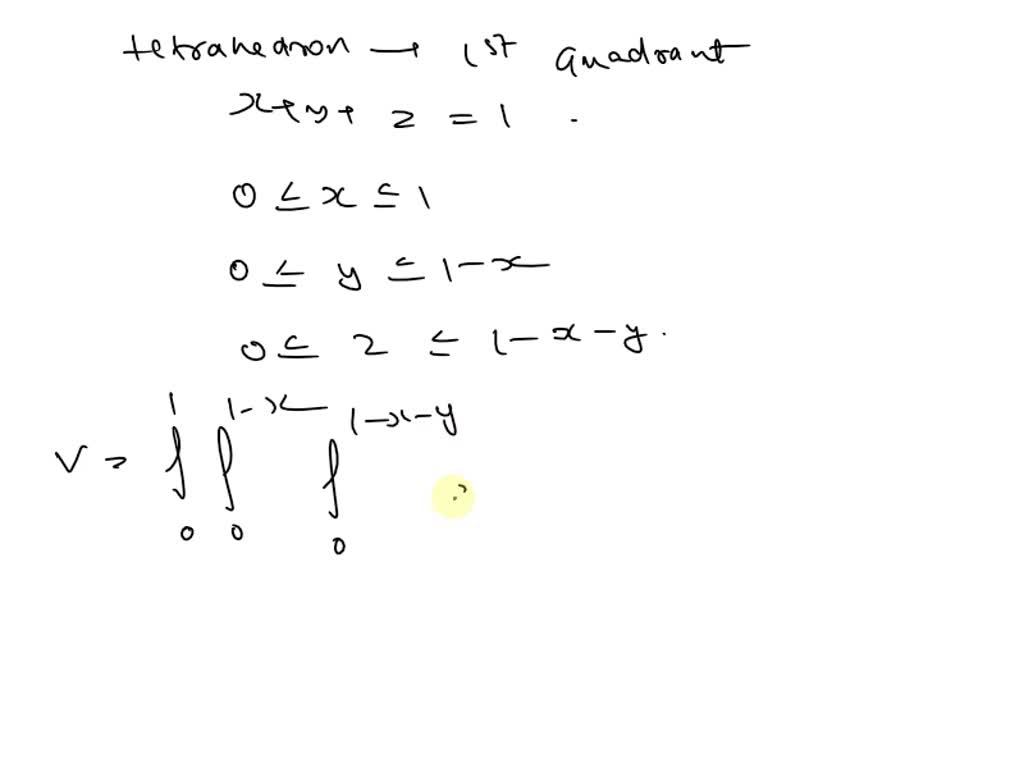 tetrahedron → 1st quadrant
x+y+ z = 1 .
0 ≤ x ≤ 1
0 ≤ y ≤ 1-x
0 ≤ z ≤ 1-x-y.
V = ∫₀¹ ∫₀^{1-x} ∫₀^{1-x-y}